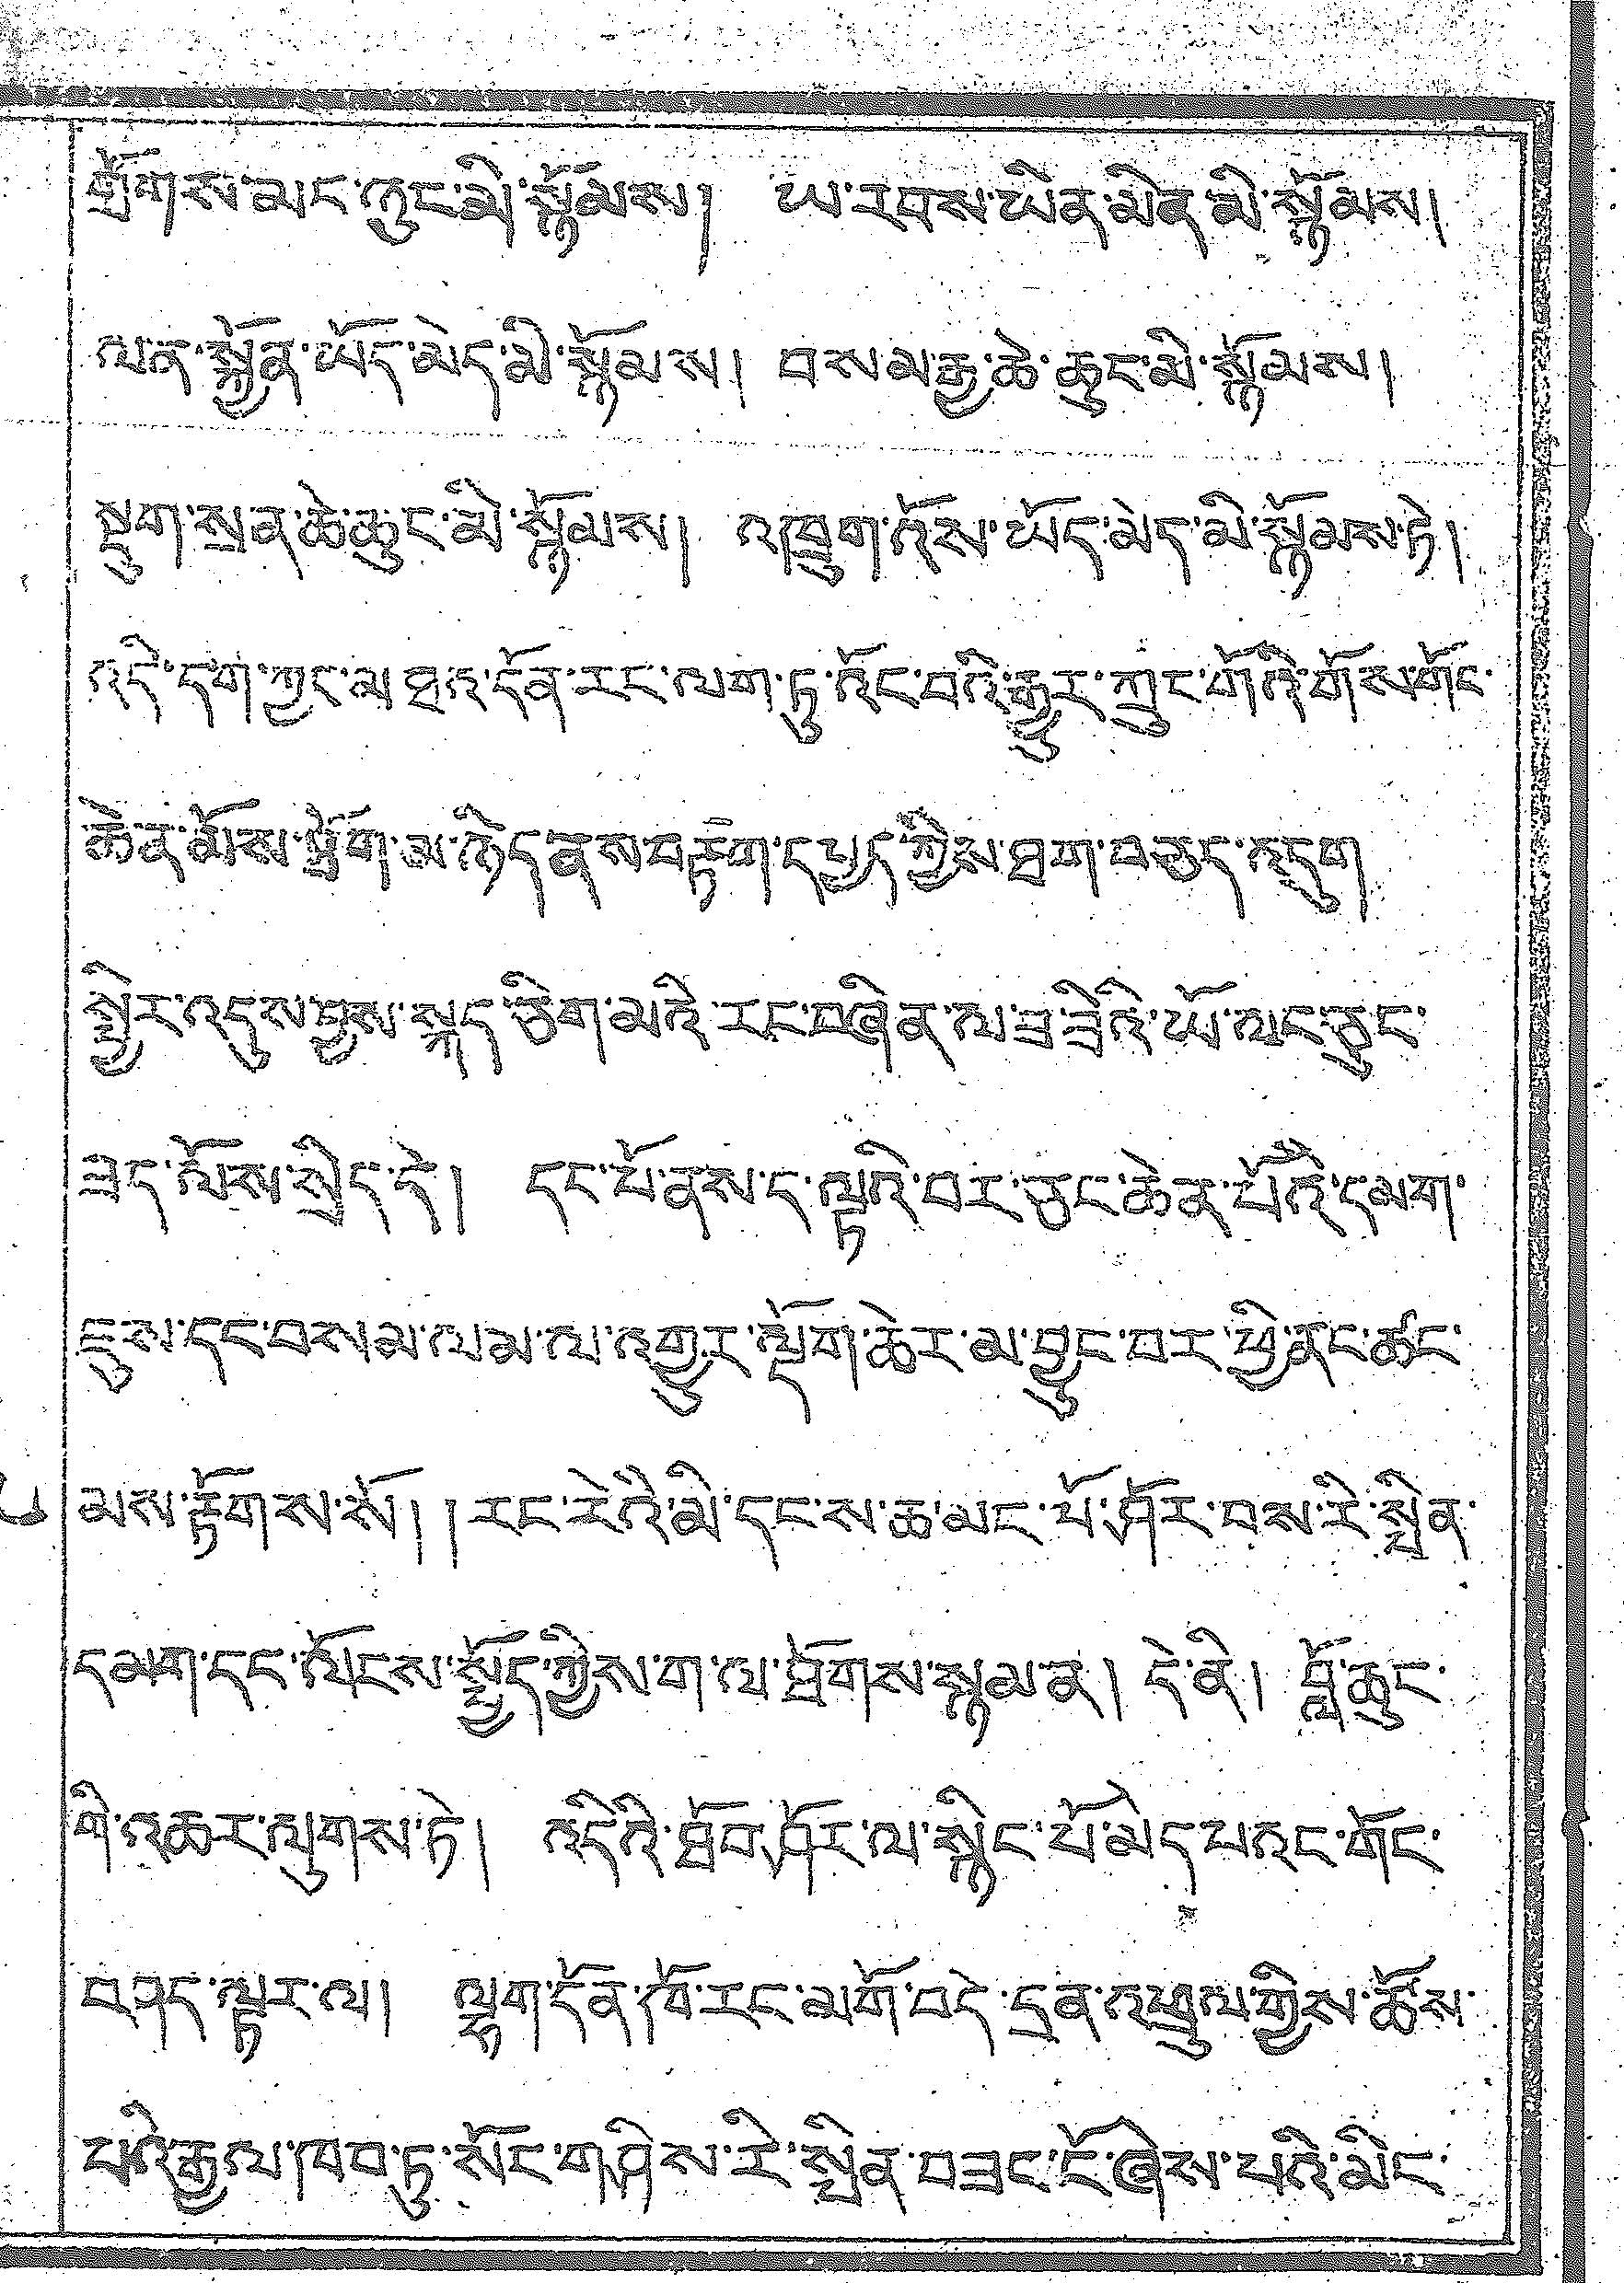 གྲོགས་མང་ཉུང་མི་སྙོམས། ཡ་རབས་ཡིན་མིན་མི་སྙོམས།
ལན་སྐྱོན་ཡོད་མེད་མི་སྙོམས། བསམ་རྒྱ་ཆེ་ཆུང་མི་སྙོམས།
སྡུག་སྲན་ཆེ་ཆུང་མི་སྙོམས། འབྲུག་འོས་ཡོད་མེད་མི་སྙོམས་ཏེ།
འདི་དག་ཀྱང་མཐའ་དོན་རང་ལག་ཏུ་འོང་བའི་རྒྱུར་ཀྲུང་གོའི་གོས་གོང་
ཆེན་མོས་སྲོག་མ་ཉེད་ནས་བརྟག་དཔྱད་ཀྱིས་ཐག་བཅད་འདུག
སྤྱིར་འདུས་བྱས་སྐད་ཅིག་མའི་རང་བཞིན་ལ་ཟ་ཟིའི་ཡོ་ལང་ཅུང་
ཟད་ལོས་སྲིད་དེ། དང་པོ་ནས་ད་ལྟའི་བར་ཅང་ཆེན་པོའི་དམག་
དུས་དང་བསམ་ལམ་ལ་འགྱུར་ལྡོག་ཆེར་མ་བྱུང་བར་ཕྱི་ནང་ཚང་
མས་རྟོགས་སོ། །རང་རེའི་མི་དང་ས་ཆ་མང་པོ་ཤོར་བས་རེ་སྲིན་
དམག་དང་ལོངས་སྤྱོད་ཀྱིས་ག་ལ་ཐོགས་སྙམ་ན། དེ་ནི། བློ་ཆུང་
གི་འཆར་ལུགས་ཏེ། འདིའི་ཐོབ་ཤོར་ལ་སྙིང་པོ་མེད་པའང་གོང་
བཤད་ལྟར་ལ། ལྷག་དོན་ཁོ་རང་མགོ་བདེ་དྲན་འཕྲུལ་གྱིས་ཆོས་
པའི་རྒྱལ་ཁབ་ཏུ་སོང་གཤིས་རེ་སྲིན་བཟང་ངོ་ཞེས་པའི་མིང་